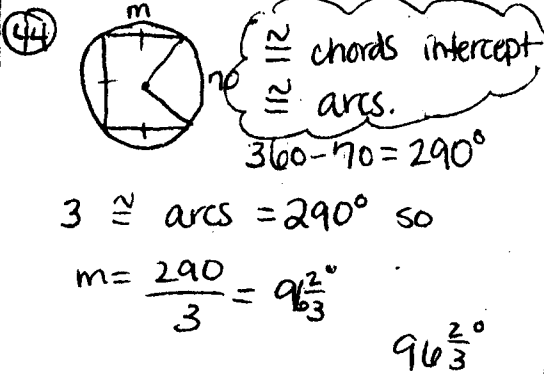 44
m
70
≅ chords intercept
≅ arcs.
360-70=290°
3 ≅ arcs = 290° so
m= 290/3 = 96 2/3°
96 2/3°